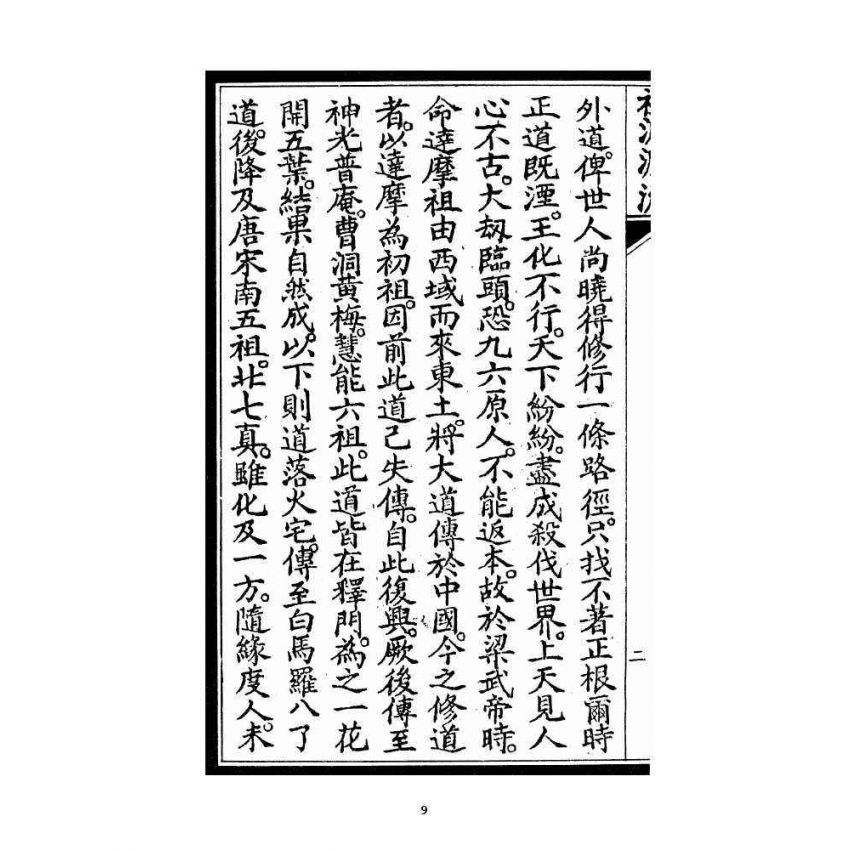 外道。俾世人尚曉得修行一條路徑。只找不著正根爾時
正道既湮。王化不行。天下紛紛。盡成殺伐世界。上天見人
心不古。大刼臨頭。恐九六原人。不能返本。故於梁武帝時。
命達摩祖由西域而來東土。將大道傳於中國。今之修道
者。以達摩為初祖。因前此道已失傳。自此復興。厥後傳至
神光普庵。曹洞黃梅。慧能六祖。此道皆在釋門。為之一花
開五葉。結果自然成。以下則道落火宅。傳至白馬羅八了
道。後降及唐宋南五祖。北七真。雖化及一方。隨緣度人。未
二
9